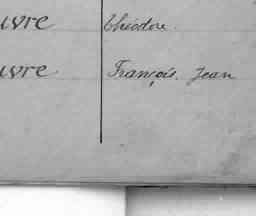 uvre Théodore.
uvre François. Jean